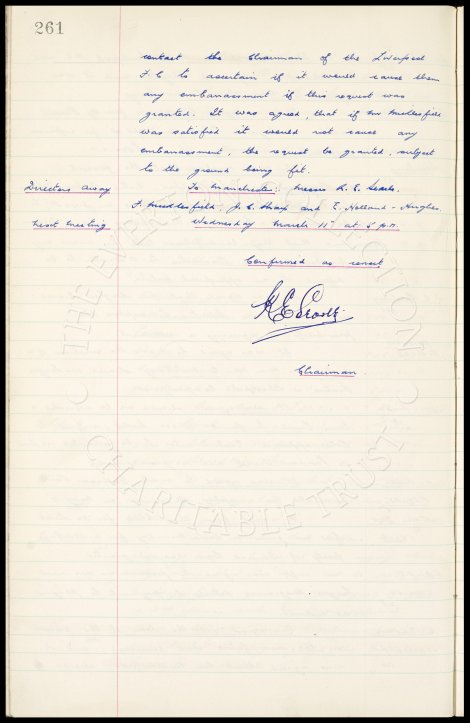 261
contact the Chairman of the Liverpool
F.C to ascertain if it would cause them
any embarrassment if this request was
granted. It was agreed, that if Mr Micklesfield
was satisfied it would not cause any
embarrassment, the request be granted, subject
to the ground being fit.
Directors away To Manchester: Messrs R. E. Searle,
F. Micklesfield, J. C. Sharp and E. Holland-Hughes.
Next meeting Wednesday March 11th at 5 p.m.
Confirmed as correct
Chairman.
THE EVERTON COLLECTION
CHARITABLE TRUST